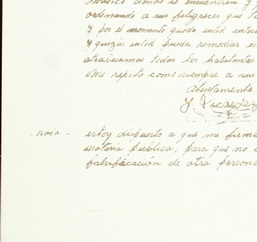 donde se encuentran y
ordenando a sus feligreses que
Y por el momento queda usted entera
Y quizás usted pueda remediar
atravesamos todos los habitantes
Me repito como siempre a sus
Atentamente
nota - estoy dispuesto a que me firma
notaria publica, para que no
falsificación de otra persona